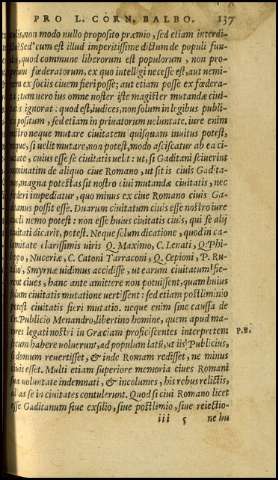 PRO L. CORN. BALBO. 137
cis, non modo nullo proposito præmio, sed etiam interdi-
Sed cum est illud imperitissime dictum de populi fun-
quod commune liberorum est populorum, non pro-
fœderatorum, ex quo intelligi necesse est, aut nemi-
ex sociis ciuem fieri posse, aut etiam posse ex fœdera-
tum vero ius omne noster iste magister mutandæ ciui-
ignorat: quod est, iudices, non solum in legibus publi-
positum, sed etiam in priuatorum voluntate. iure enim
neque mutare ciuitatem quisquam inuitus potest,
si velit mutare, non potest, modo asciscatur ab ea ci-
cuius esse se ciuitatis velit: ut, si Gaditani sciuerint
nominatim de aliquo ciue Romano, ut sit is ciuis Gadita-
magna potestas sit nostro ciui mutandæ ciuitatis, nec
impediatur, quo minus ex ciue Romano ciuis Ga-
possit esse. Duarum ciuitatum ciuis esse nostro iure
nemo potest: non esse huius ciuitatis ciuis, qui se alij
dicarit, potest. Neque solum dicatione, quod in ca-
clarissimis viris Q. Maximo, C. Lenati, Q. Phi-
Nuceriæ, C. Catoni Tarracone, Q. Cepioni, P. Ru-
Smyrnæ vidimus accidisse, ut earum ciuitatum fie-
ciues, hanc ante amittere non potuissent, quam huius
ciuitatis mutatione vertissent: sed etiam postliminio
potest ciuitatis fieri mutatio. neque enim sine caussa de
Publicio Menandro, libertino homine, quem apud ma-
legati nostri in Græciam proficiscentes interpretem P.R.
habere voluerunt, ad populum latū, ut iis Publicius,
domum reuertisset, & inde Romam redisset, ne minus
esset. Multi etiam superiore memoria ciues Romani
voluntate indemnati, & incolumes, his rebus relictis,
as se in ciuitates contulerunt. Quod si ciui Romano licet
esse Gaditanum siue exsilio, siue postliminio, siue reiectio-
iii 5 ne hu